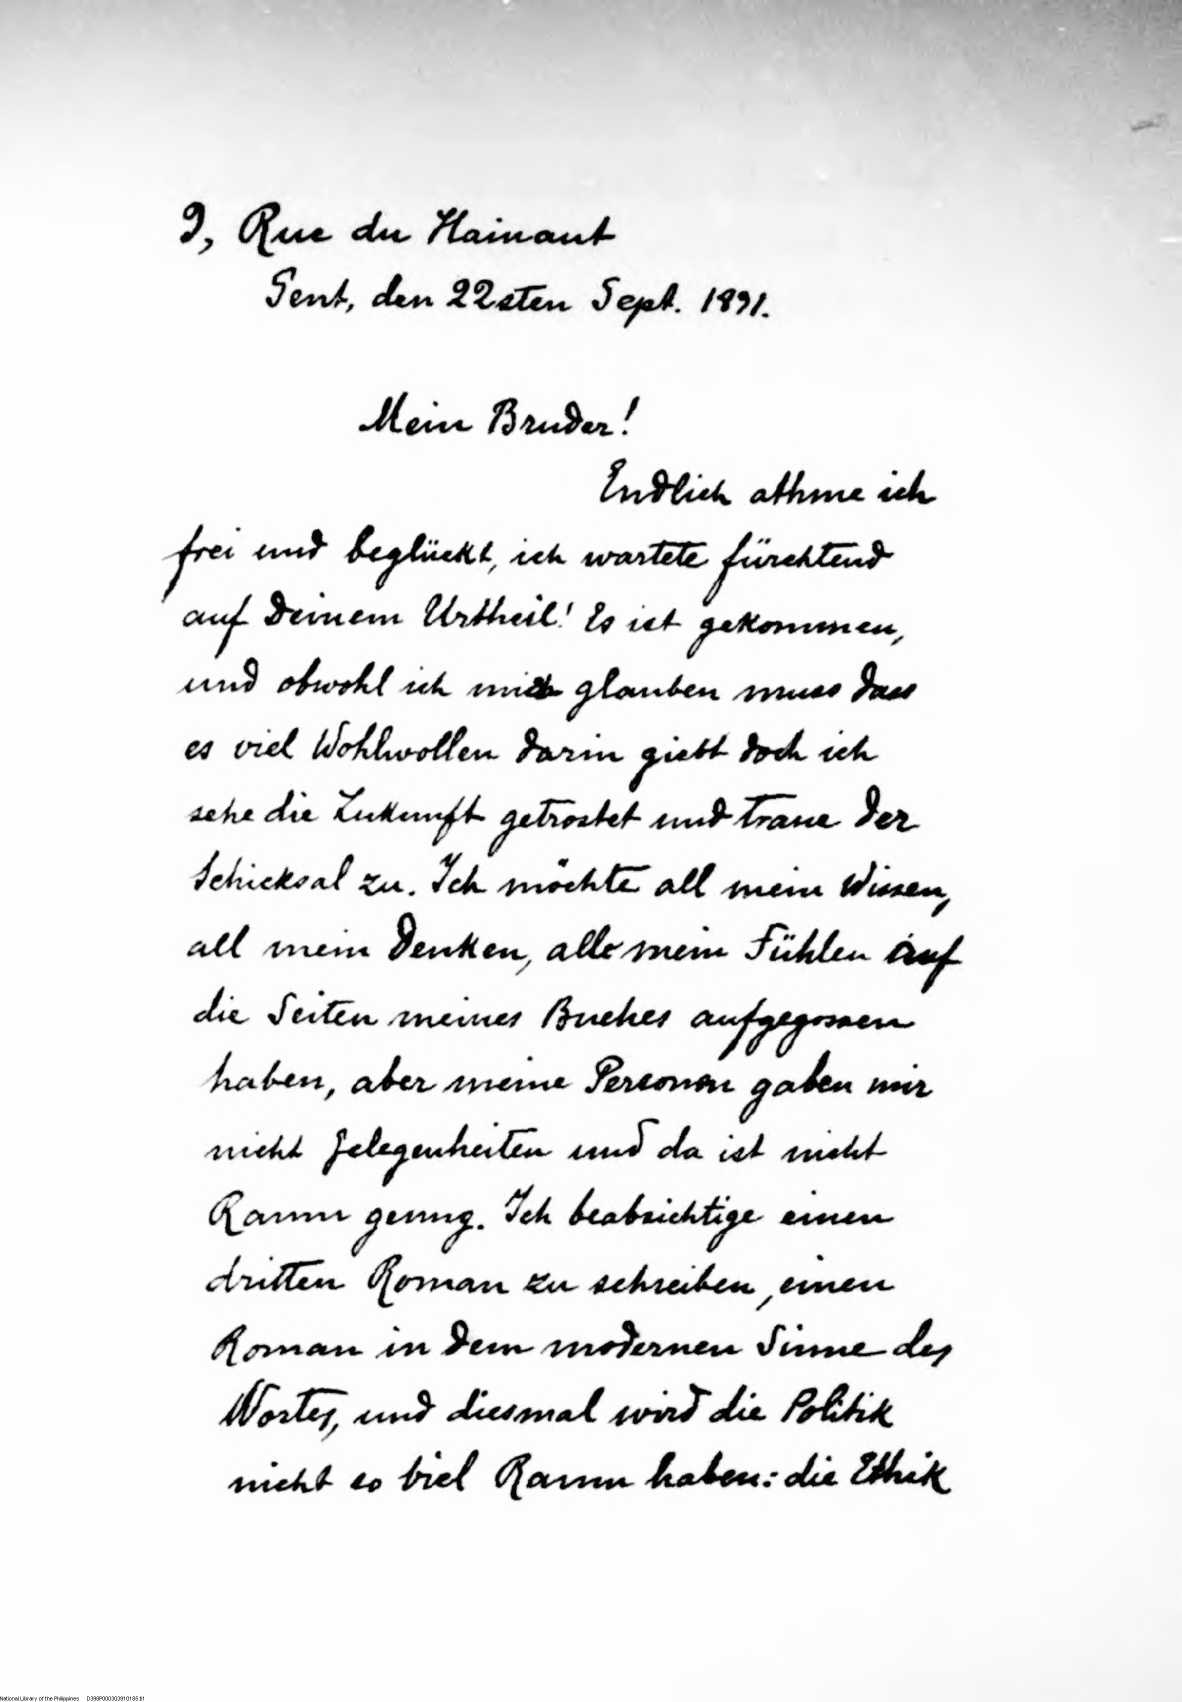 9, Rue du Hainaut
Gent, den 22sten Sept. 1891.
Mein Bruder!
Endlich athme ich
frei und beglückt, ich wartete fürchtend
auf Deinem Urtheil! Es ist gekommen,
und obwohl ich mich glauben muss dass
es viel Wohlwollen darin giebt doch ich
sehe die Zukunft getrostet und traue der
Schicksal zu. Ich möchte all mein Wissen,
all mein Denken, alle mein Fühlen auf
die Seiten meines Buches aufgegossen
haben, aber meine Personen gaben mir
nicht Gelegenheiten und da ist nicht
Raum genug. Ich beabsichtige einen
dritten Roman zu schreiben, einen
Roman in dem modernen Sinne des
Wortes, und diesmal wird die Politik
nicht so viel Raum haben: die Ethik
National Library of the Philippines